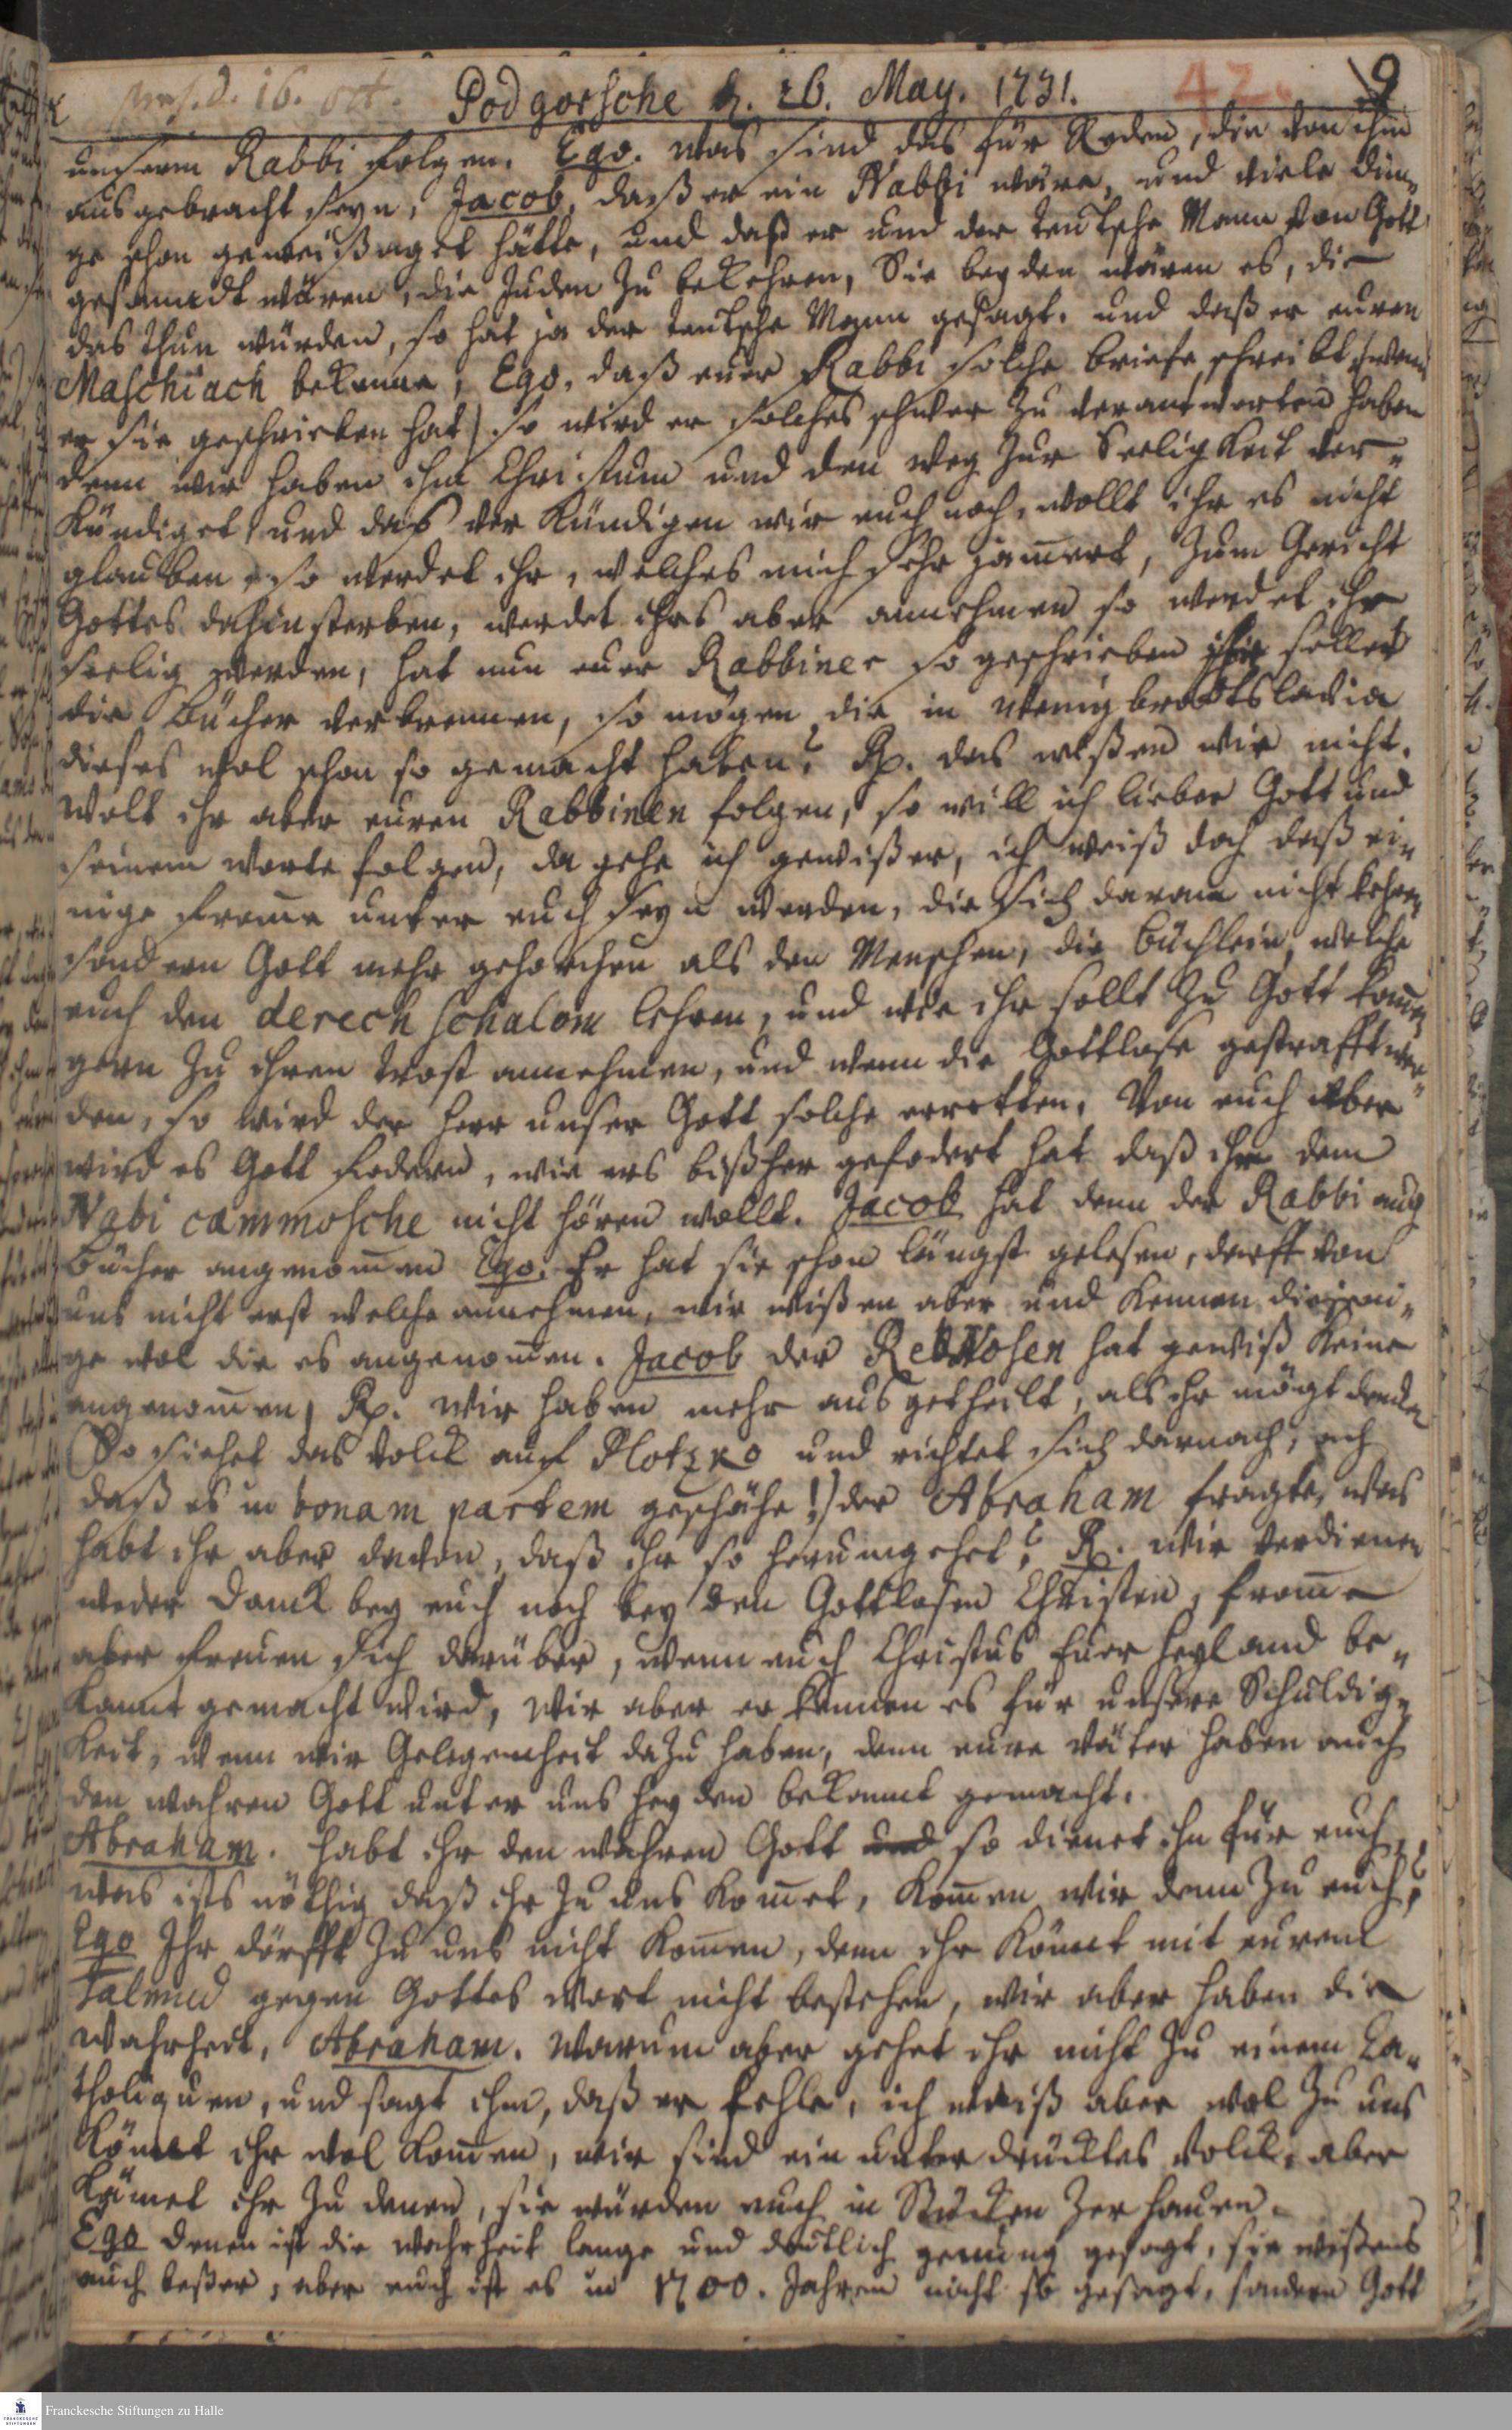 præs. d. 16. oct. Podgorsche d. 26. May. 1731. 42. 9
unserm Rabbi folgen. Ego. was sind das für Reden, die von ihm
ausgebracht seyn, Jacob, daß er ein Nabbi wäre, und viele din„
ge schon geweißaget hätte, und daß er und der teutsche Mann von Gott
gesandt wären, die Juden zu bekehren, Sie beyden wären es, die
das thun würden, so hat ja der teutsche Mann gesagt. und daß er euren
Maschiach bekenne, Ego, daß euer Rabbi solche briefe schreibt (wenn
er sie geschrieben hat) so wird er solches schwer zu verantworten haben
denn wir haben ihm Christum und den weg zur Seeligkeit ver„
kündiget, und das verkündigen wir euch noch, wollt ihr es nicht
glauben, so werdet ihr, welches mich sehr jam̄ert, zum Gericht
Gottes dahin sterben, werdet ihrs aber annehmen so werdet ihr
seelig werden, hat nun euer Rabbiner so geschrieben ihr sollet
die Bücher verbrennen, so mögen die in wenig bratslavia
dieses wol schon so gemacht haben? Rp. das wißen wir nicht.
wolt ihr aber euren Rabbinen folgen, so will ich lieber Gott und
seinem worte folgen, da gehe ich gewißer, ich weiß doch daß ei„
nige From̄e unter euch seyn werden, die sich daran nicht kehren
sondern Gott mehr gehorchen als den Menschen, die büchlein, welche
euch den derech schalom lehren, und wie ihr sollt zu Gott kom̄en
gern zu ihren trost annehmen, und wenn die Gottlose gestrafft wer„
den, so wird der Herr unser Gott solche erretten. Von euch aber
wird es Gott fodern, wie ers bißher gefodert hat daß ihr dem
Nabi cammosche nicht hören wollt. Jacob hat denn der Rabbi auch
Bücher angenom̄en Ego. Er hat sie schon längst gelesen, darff von
uns nicht erst welche annehmen, wir wißen aber und kennen diejeni„
ge wol die es angenom̄en. Jacob der Reb Nosen hat gewiß keine
angenom̄en, Rp. wir haben mehr ausgetheilt, als ihr mögt dencken
(So siehet das volck auf Plotzko und richtet sich darnach, ach
daß es in bonam partem geschähe!) der Abraham fragte, was
habt ihr aber davon, daß ihr so herumgehet? Rp. wir verdienen
weder danck bey euch noch bey den Gottlosen Christen, from̄e
aber freuen sich darüber, wenn euch Christus Euer Heyland be„
kannt gemacht wird, wir aber erkennen es für unsere Schuldig„
keit, wenn wir Gelegenheit dazu haben, denn eure väter haben auch
den wahren Gott unter uns heyden bekannt gemacht.
Abraham. habt ihr den wahren Gott und so dienet ihn für euch,
was ists nöthig daß ihr zu uns kom̄et, kom̄en wir denn zu euch?
Ego Ihr dörfft zu uns nicht kom̄en, denn ihr könnt mit eurem
Talmud gegen Gottes wort nicht bestehen, wir aber haben die
wahrheit, Abraham. warum aber gehet ihr nicht zu einem Ca„
tholiquen, und sagt ihm, daß er fehle, ich weiß aber wol zu uns
könnt ihr wol kom̄en, wir sind ein unterdrücktes volck, aber
kämet ihr zu denen, sie würden euch in Stücken zerhauen.
Ego denen ist die wahrheit lange und deutlich genung gesagt, sie wißens
auch beßer, aber euch ist es in 1700. Jahren nicht so gesagt, sondern Gott
Franckesche Stiftungen zu Halle